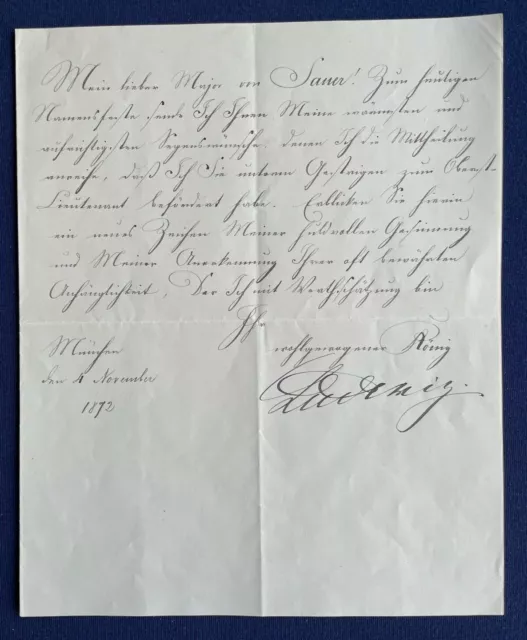 Mein lieber Major von Sauer! Zum heutigen
Namensfeste sende Ich Ihnen Meine wärmsten und
aufrichtigsten Segenswünsche, denen Ich die Mittheilung
anreihe, daß Ich Sie unterm Gestrigen zum Oberst-
Lieutenant befördert habe. Erblicken Sie hierin
ein neues Zeichen Meiner huldvollen Gesinnung
und Meiner Anerkennung Ihrer oft bewährten
Anhänglichkeit, Der Ich mit Werthschätzung bin
Ihr
München
wohlgewogener König
den 4 November
Ludwig.
1872